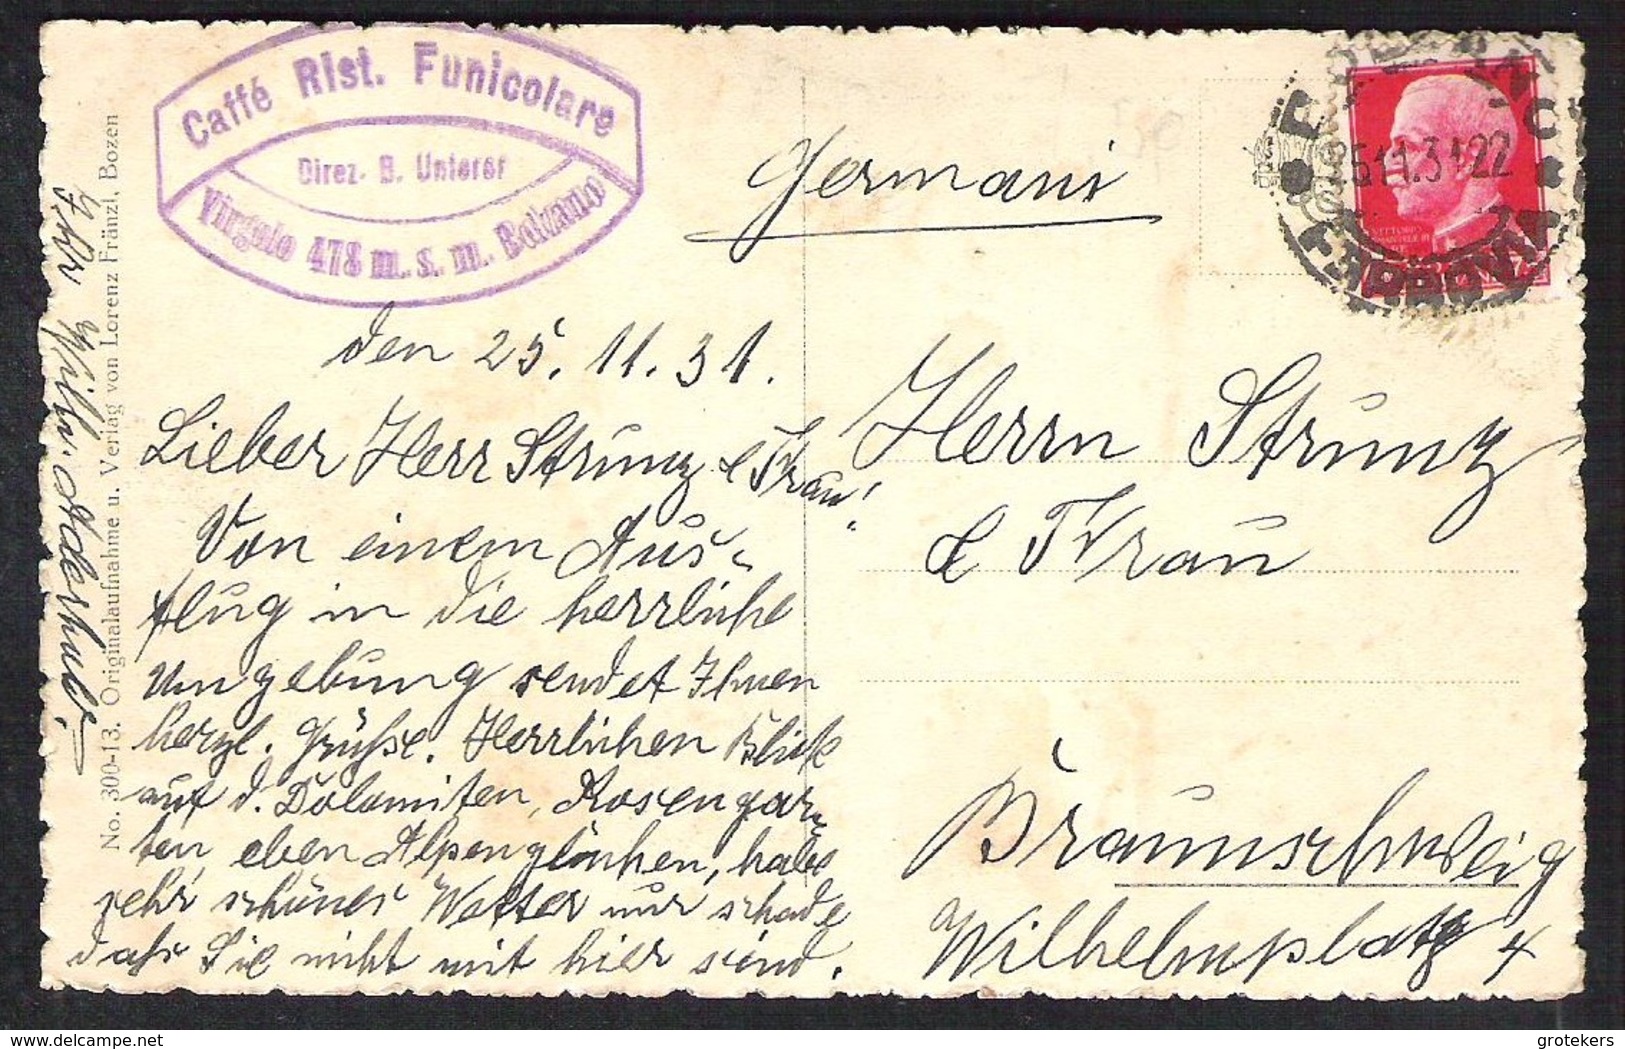 Caffé Rist. Funicolare
Direz. B. Unterer
Virgolo 478 m. s. m. Bolzano
Germani
25 11.31 22
FERROVIA
den 25. 11. 31.
Lieber Herr Strunz & Frau!
Von einem Aus-
flug in die herrliche
Umgebung sendet Ihnen
herzl. Grüße. Herrlichen Blick
auf d. Dolomiten, Rosengar-
ten, eben Alpenglühen, habe
sehr schönes Wetter nur schade
daß Sie nicht mit hier sind.
Ihr Wilh.
No. 300-13. Originalaufnahme u. Verlag von Lorenz Fränzl, Bozen
Herrn Strunz
& Frau
Braunschweig
Wilhelmplatz 4
grotekers
delcampe.net